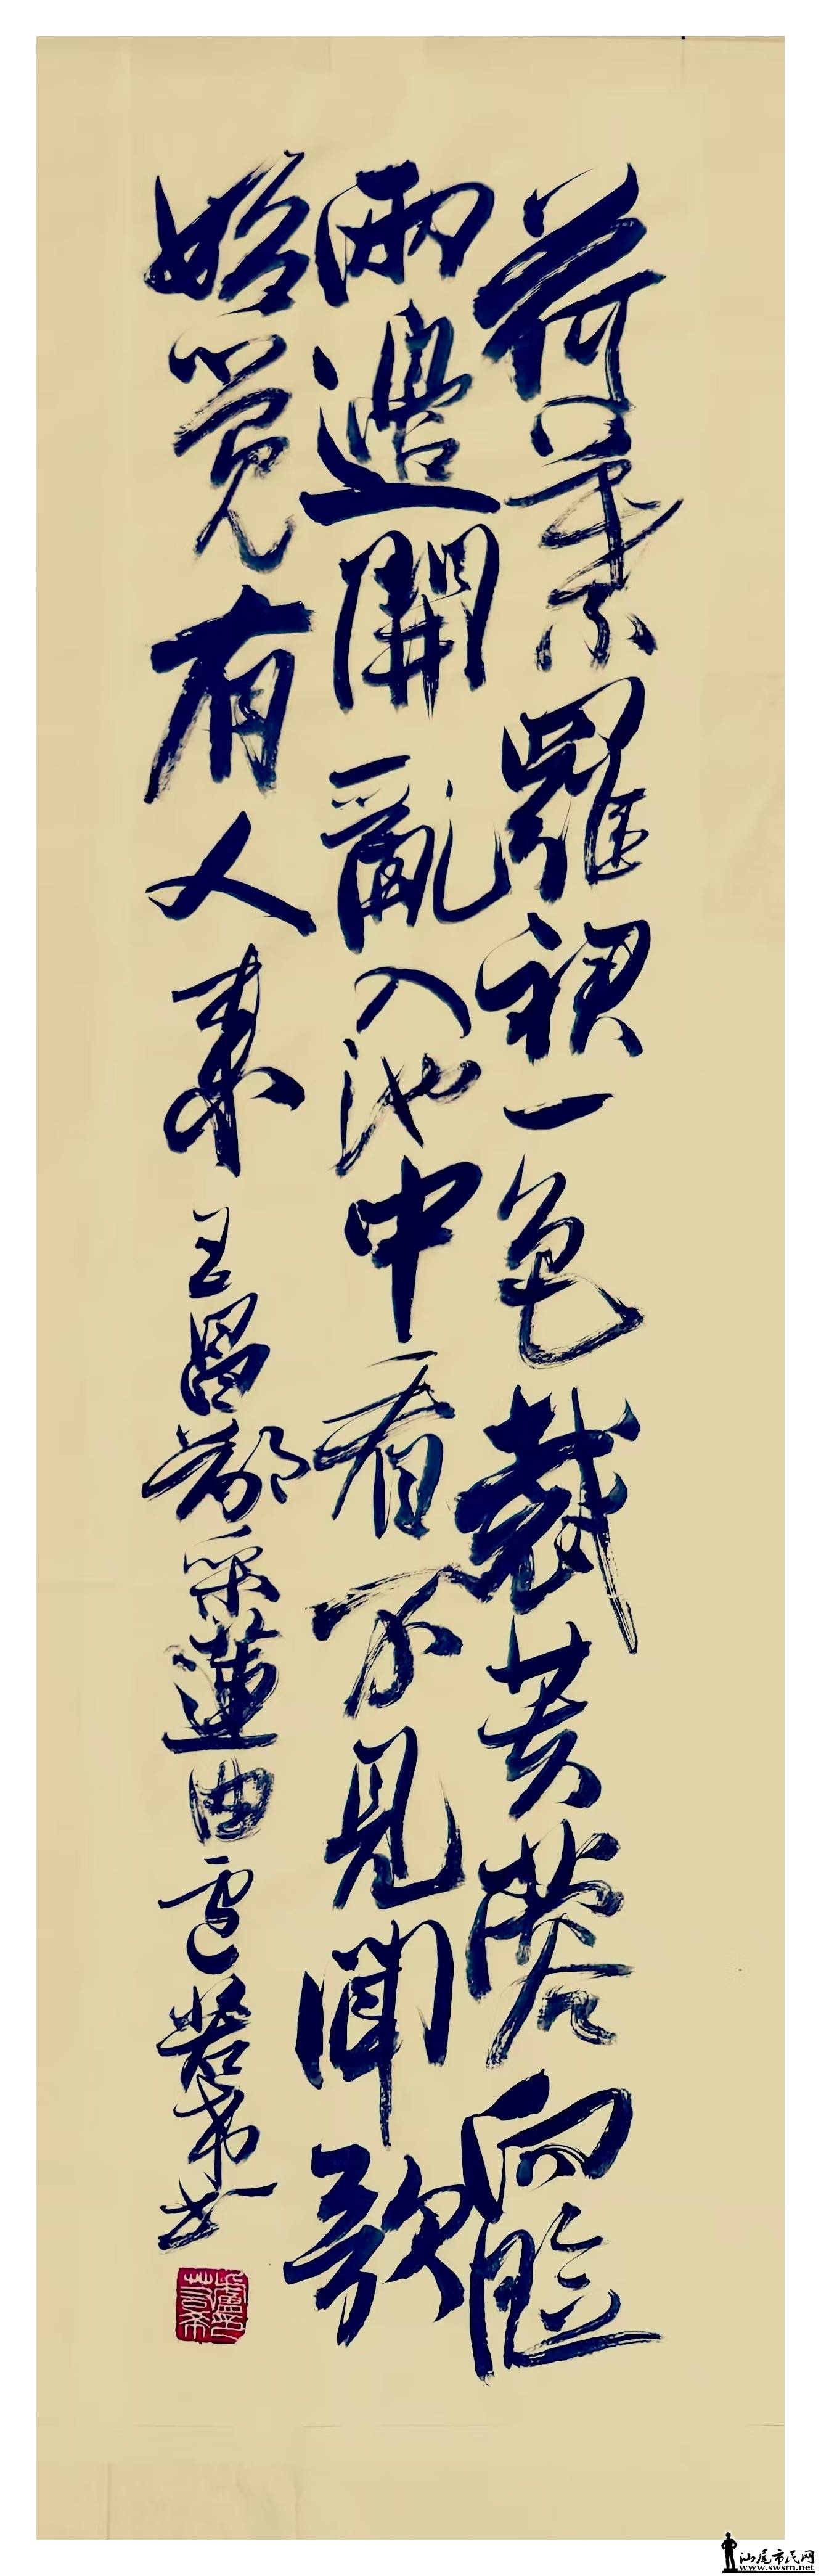 荷葉羅裙一色裁芙蓉向臉
兩邊開亂入池中看不見聞歌
始覺有人來 王昌齡采蓮曲 盧若希书
汕尾市民网
www.swsm.net